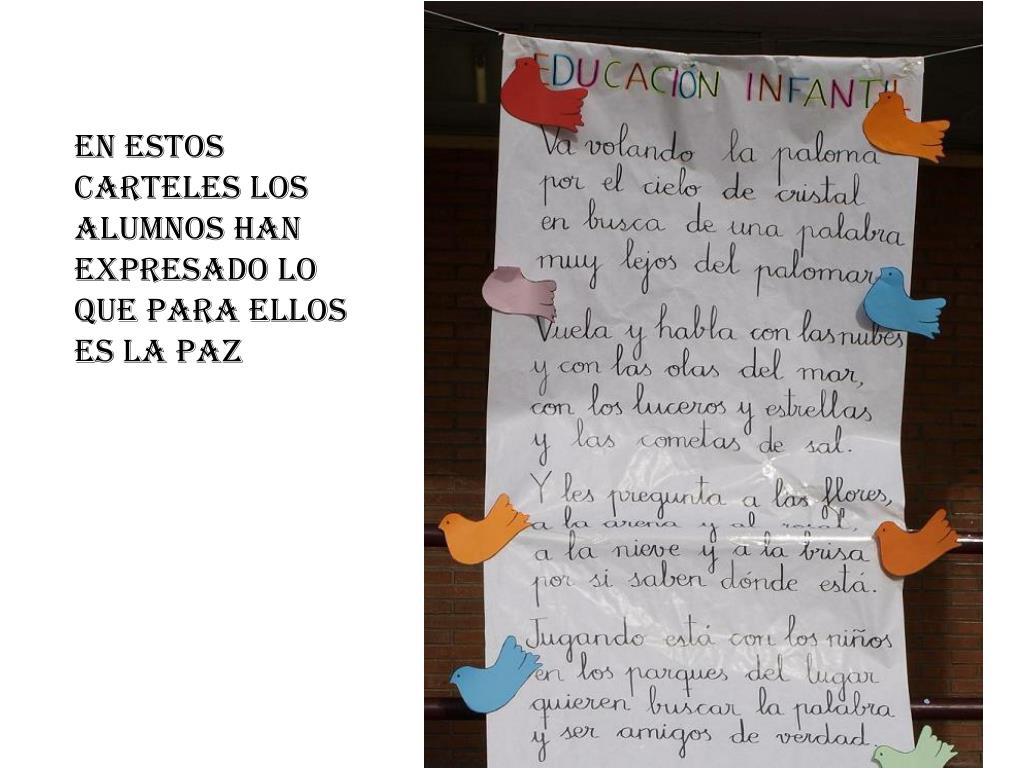 EN ESTOS
CARTELES LOS
ALUMNOS HAN
EXPRESADO LO
QUE PARA ELLOS
ES LA PAZ
EDUCACIÓN INFANTIL
Va volando la paloma
por el cielo de cristal
en busca de una palabra
muy lejos del palomar
Vuela y habla con las nubes
y con las olas del mar,
con los luceros y estrellas
y las cometas de sal.
Y les pregunta a las flores,
a la arena y al rosal,
a la nieve y a la brisa
por si saben dónde está.
Jugando está con los niños
en los parques del lugar
quieren buscar la palabra
y ser amigos de verdad.